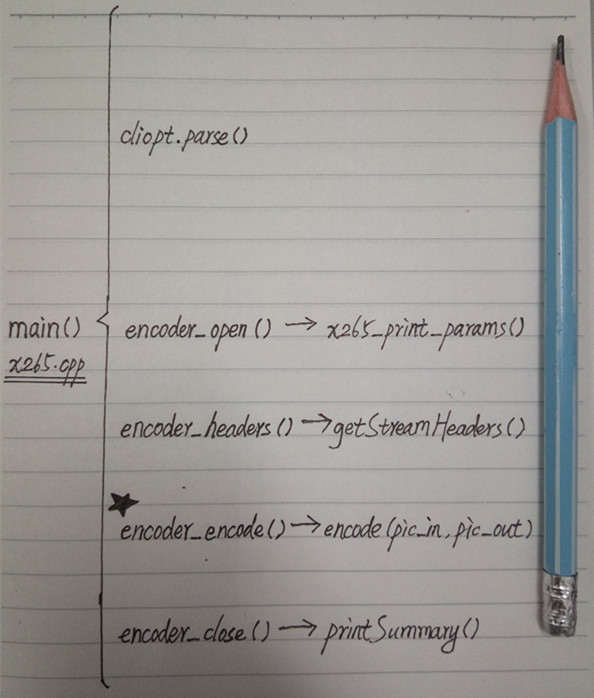 cliopt.parse()
main()
x265.cpp
encoder_open() → x265_print_params()
encoder_headers() → getStreamHeaders()
★
encoder_encode() → encode(pic_in, pic_out)
encoder_close() → printSummary()